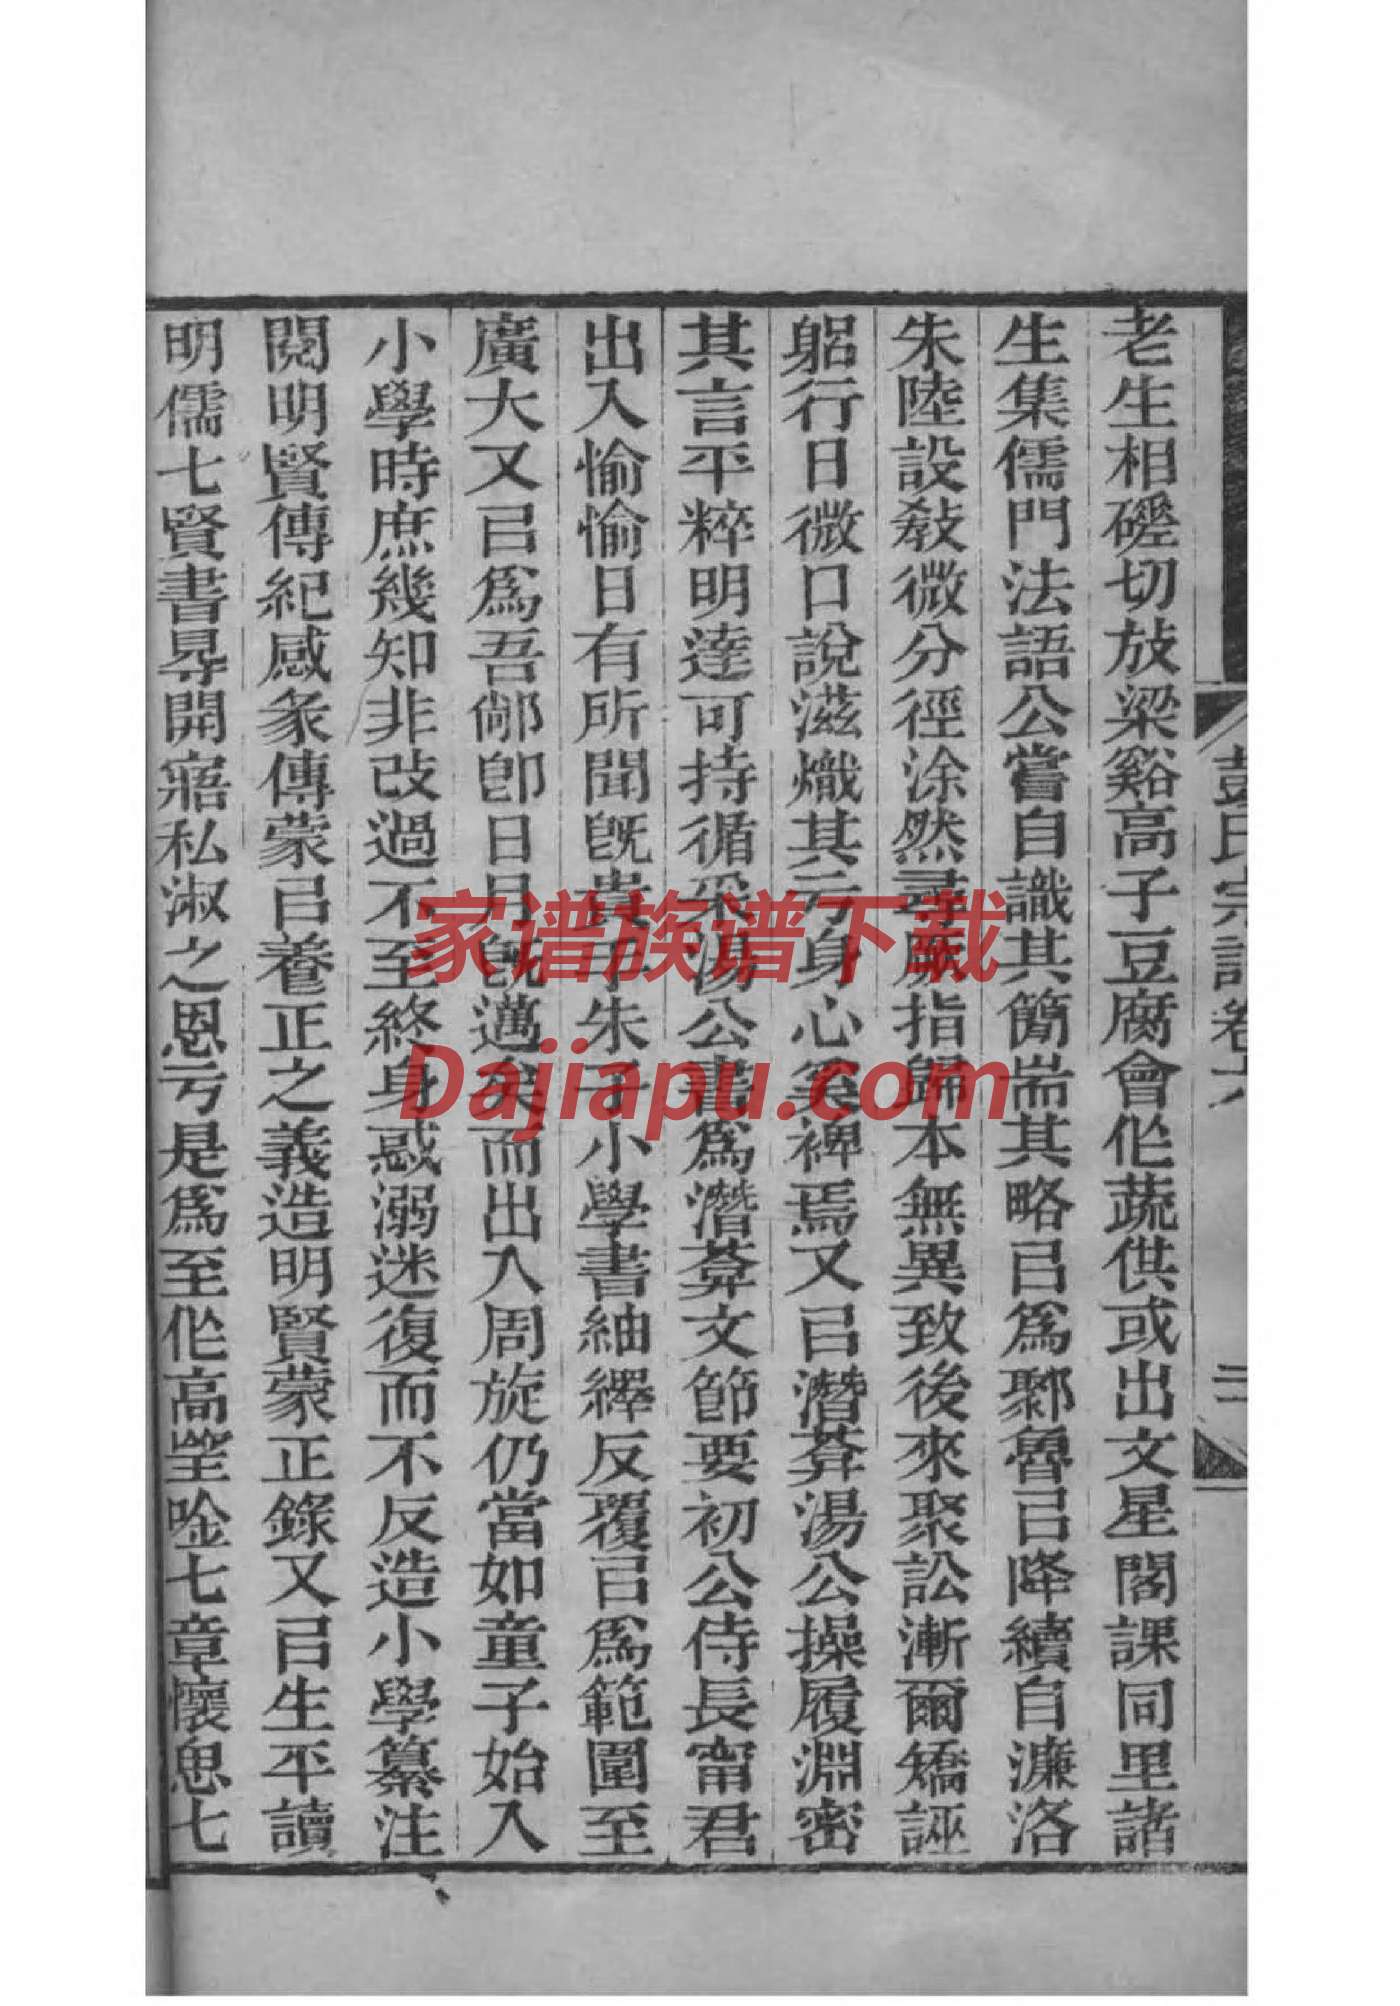 彭氏宗譜卷六
二
老生相磴切放梁谿高子豆腐會作蔬供或出文星閣課同里諸
生集儒門法語公嘗自識其簡耑其略㠯爲鄒魯㠯降續自濂洛
朱陸設敎微分徑涂然尋厥指歸本無異致後來聚訟漸爾矯誣
躬行日微口說滋熾其亏身心奚裨焉又㠯潛菴湯公操履淵密
其言平粹明達可持循采湯公書爲潛菴文節要初公侍長甯君
出入愉愉日有所聞旣貴手朱子小學書紬繹反覆㠯爲範圍至
廣大又㠯爲吾鄕卽日月旣邁矣而出入周旋仍當如童子始入
小學時庶幾知非改過不至終身惑溺迷復而不反造小學纂注
閱明賢傳紀感彖傳蒙㠯養正之義造明賢蒙正錄又㠯生平讀
明儒七賢書㝵開寤私淑之恩亏是爲至作高朢唫七章懷思七
家谱族谱下载
Dajiapu.com